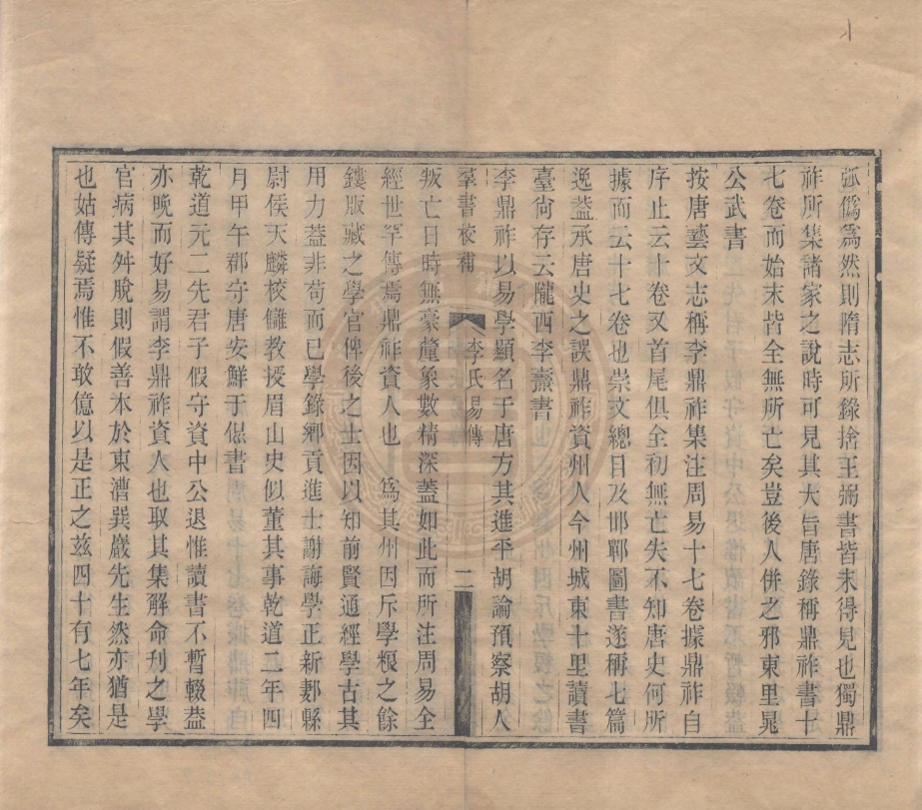 弧僞為然則隋志所錄捨王弼書皆未得見也獨鼎
祚所集諸家之說時可見其大旨唐錄稱鼎祚書十
七卷而始末皆全無所亡矣豈後人併之邪東里晁
公武書
按唐藝文志稱李鼎祚集注周易十七卷據鼎祚自
序止云十卷又首尾俱全初無亡失不知唐史何所
據而云十七卷也崇文總目及邯鄲圖書遂稱七篇
逸蓋承唐史之誤鼎祚資州人今州城東十里讀書
臺尙存云隴西李燾書
李鼎祚以易學顯名于唐方其進平胡論預察胡人
羣書校補
李氏易傳
二
叛亡日時無豪釐象數精深蓋如此而所注周易全
經世罕傳焉鼎祚資人也 為其州因斥學糧之餘
鏤版藏之學官俾後之士因以知前賢通經學古其
用力蓋非苟而已學錄鄉貢進士謝誨學正新郪縣
尉侯天麟校讎教授眉山史似董其事乾道二年四
月甲午郡守唐安鮮于侃書
乾道元二先君子假守資中公退惟讀書不暫輟葢
亦晚而好易謂李鼎祚資人也取其集解命刋之學
官病其舛脫則假善本於東漕巽巖先生然亦猶是
也姑傳疑焉惟不敢億以是正之茲四十有七年矣